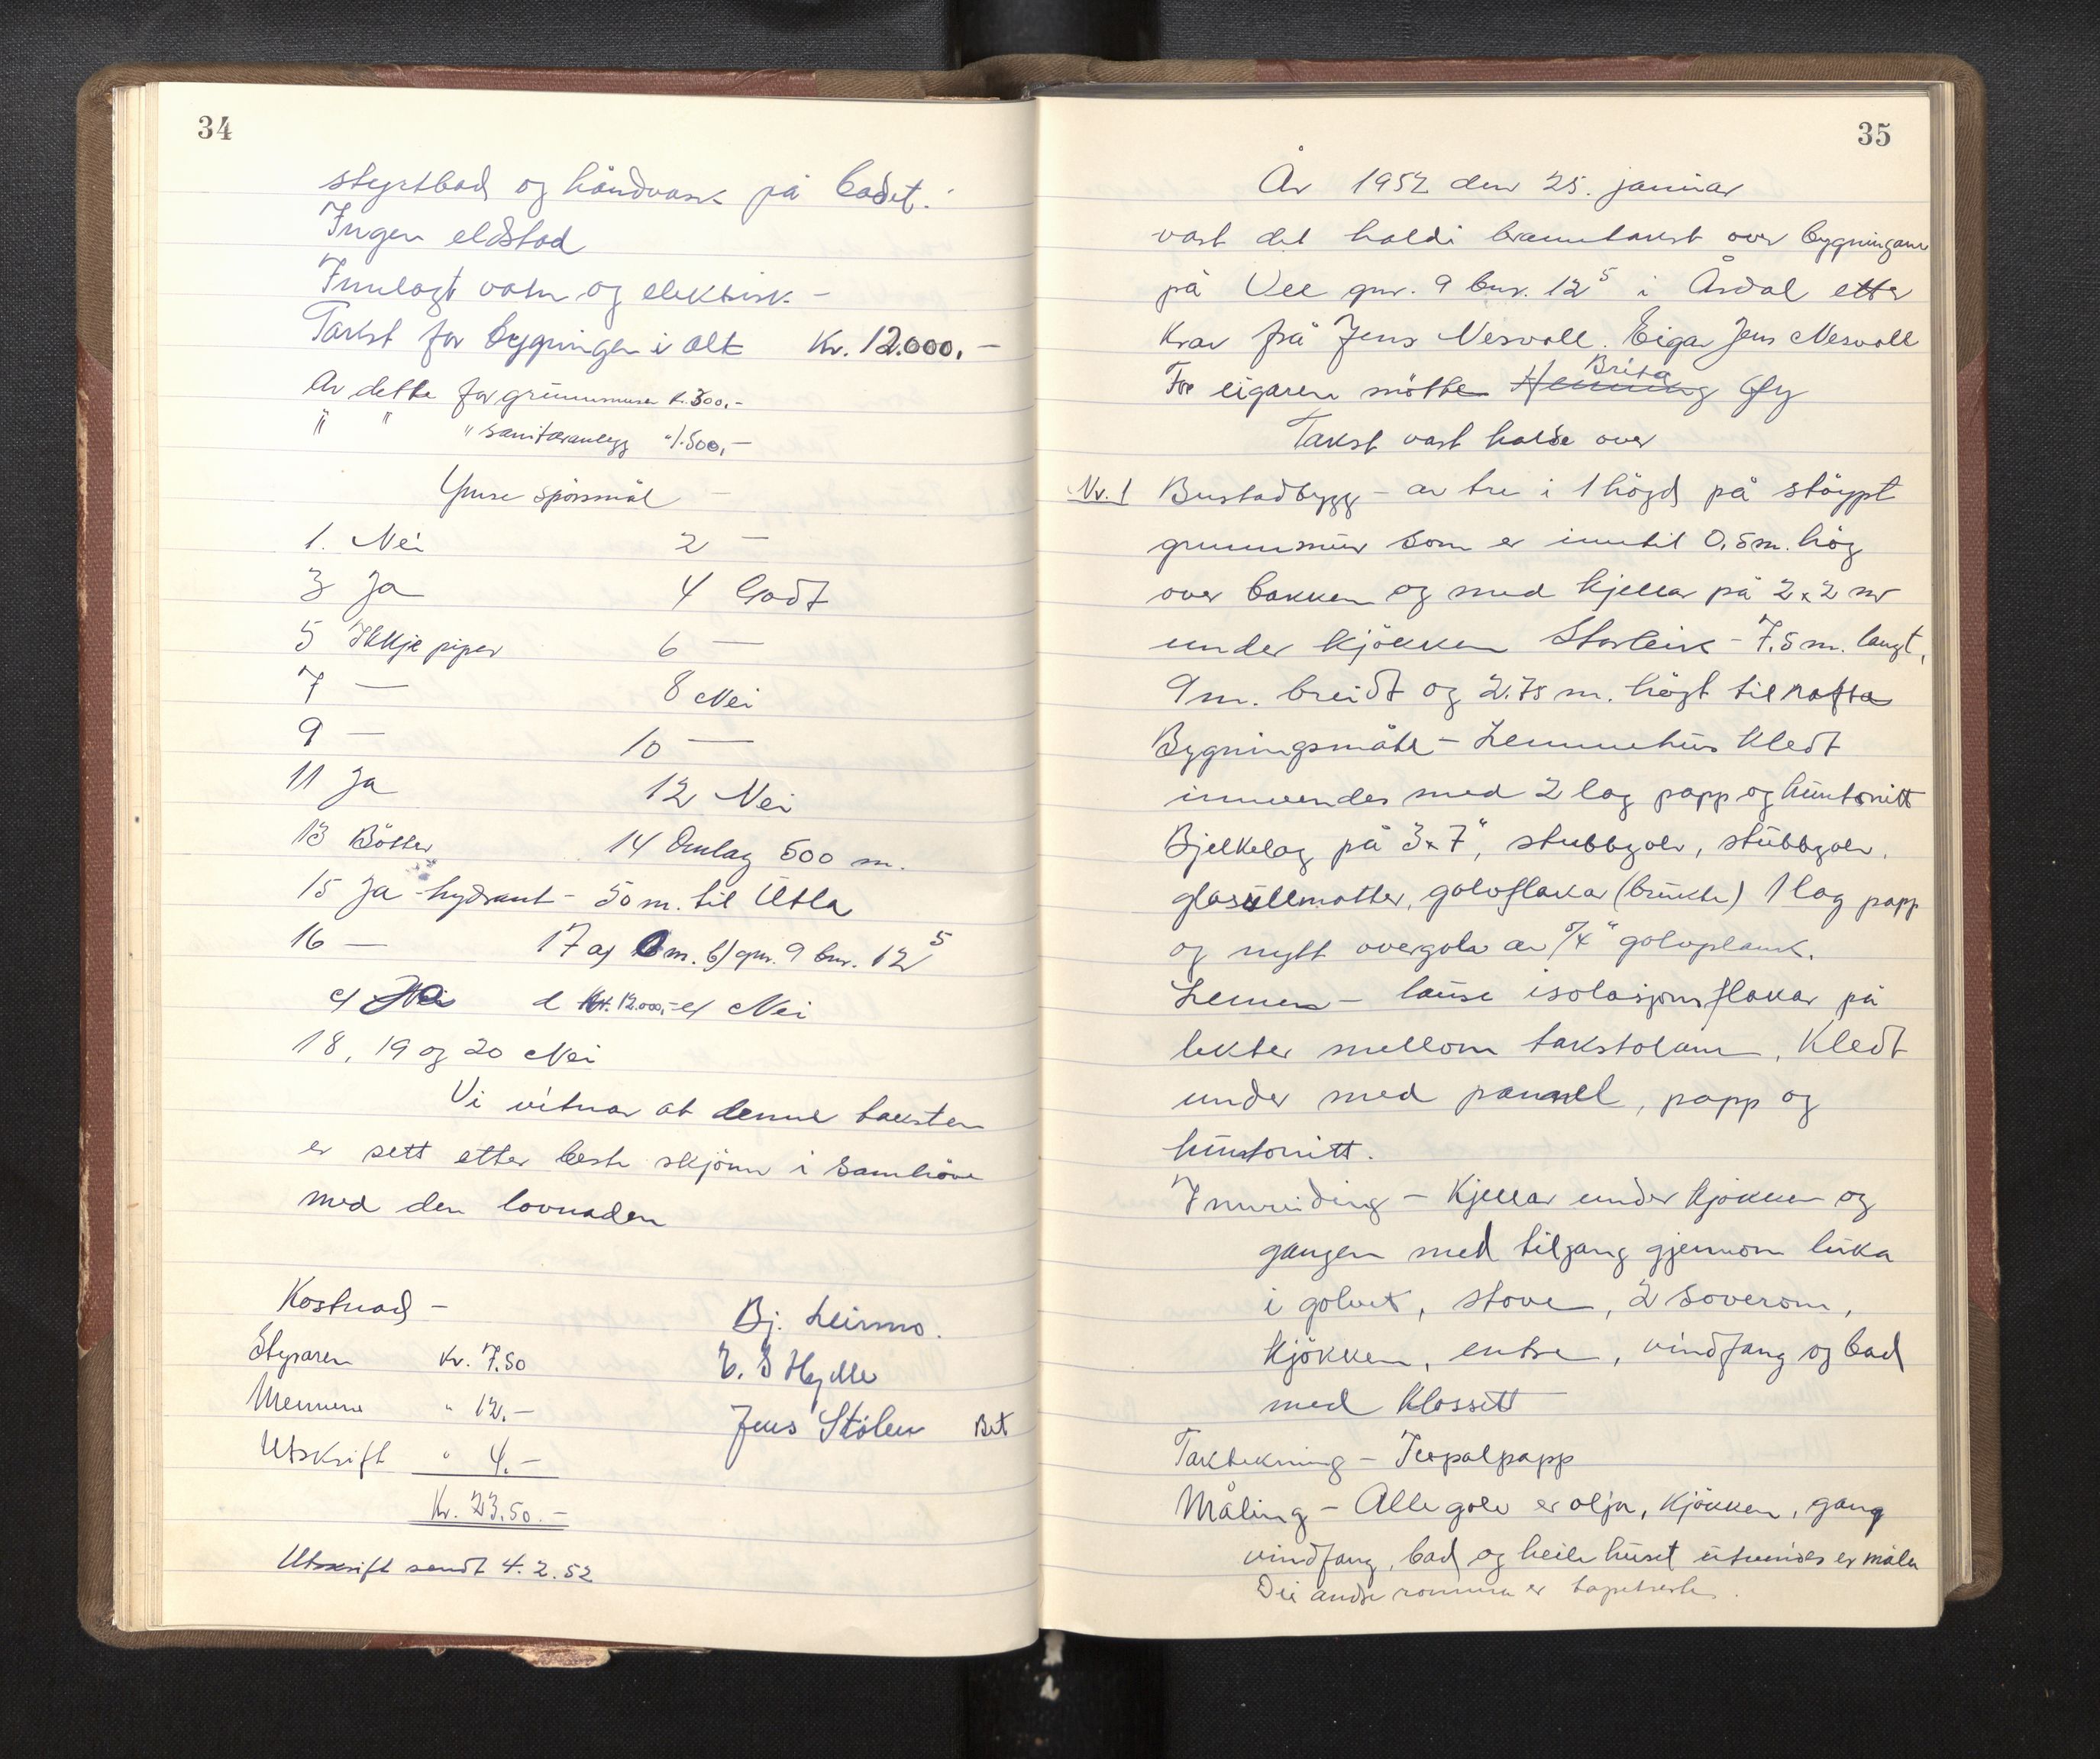 34
styrtbad og håndvask på badet.
Ingen eldstad
Innlagt vatn og elektrisk. -
Takst for bygningen i alt Kr. 12.000, -
Av dette for grunnmuren k. 300,-
" " " sanitæranlegg " 1.500, -
Ymse spörsmål -
1. Nei 2 -
3 Ja 4 Godt
5 Ikkje piper 6 -
7 - 8 Nei
9 - 10 -
11 Ja 12 Nei
13 Bötter 14 Omlag 500 m.
15 Ja - hydrant - 50 m. til Utla
16 - 17 a) m. b) gnr. 9 bnr. 12⁵
c) d Kr. 12.000,- e) Nei
18, 19 og 20 Nei
Vi vitnar at denne taksten
er sett etter beste skjönn i samhöve
med den lovnaden
Kostnad -
Styraren Kr. 7.50
Mennene " 12. -
Utskrift " 4. -
Kr. 23.50. -
Bj. Leirmo.
Jens Stölen Bet
Utskrift sendt 4. 2. 52
35
År 1952 den 25. januar
vart det haldi branntakst over bygningane
på Vee gnr. 9 bnr. 12⁵ i Årdal etter
krav frå Jens Nesvoll. Eigar Jens Nesvoll
Brita
For eigaren mötte Henning Øy
Takst vart halde over
Nr. 1 Bustadbygg - av tre i 1 högd på stöypt
grunnmur som er inntil 0,5 m. hög
over bakken og med kjellar på 2 x 2 m
under kjökken Storleik - 7,5 m. langt,
9 m. breidt og 2.75 m. högt til rafta
Bygningsmåte - Lemmehus kledt
innvendes med 2 lag papp og huntonitt
Bjelkelag på 3 x 7", stubbgolv, stubbgolv,
glasullmatter, golvflakar (brukte) 1 lag papp
og nytt overgolv av 5/4" golvplank.
Lemen - lause isolasjonsflakar på
lekter mellom takstolane, Kledt
under med pannel, papp og
huntonitt.
Innreiding - Kjellar under kjökken og
gangen med tilgang gjennom luka
i golvet, stove, 2 soverom,
kjökken, entre, vindfang og bad
med klossett
Taktekning - Icopalpapp
Måling - Alle golv er olja, kjökken, gang
vindfang, bad og heile huset utvendes er måla
Dei andre romma er tapetserte.